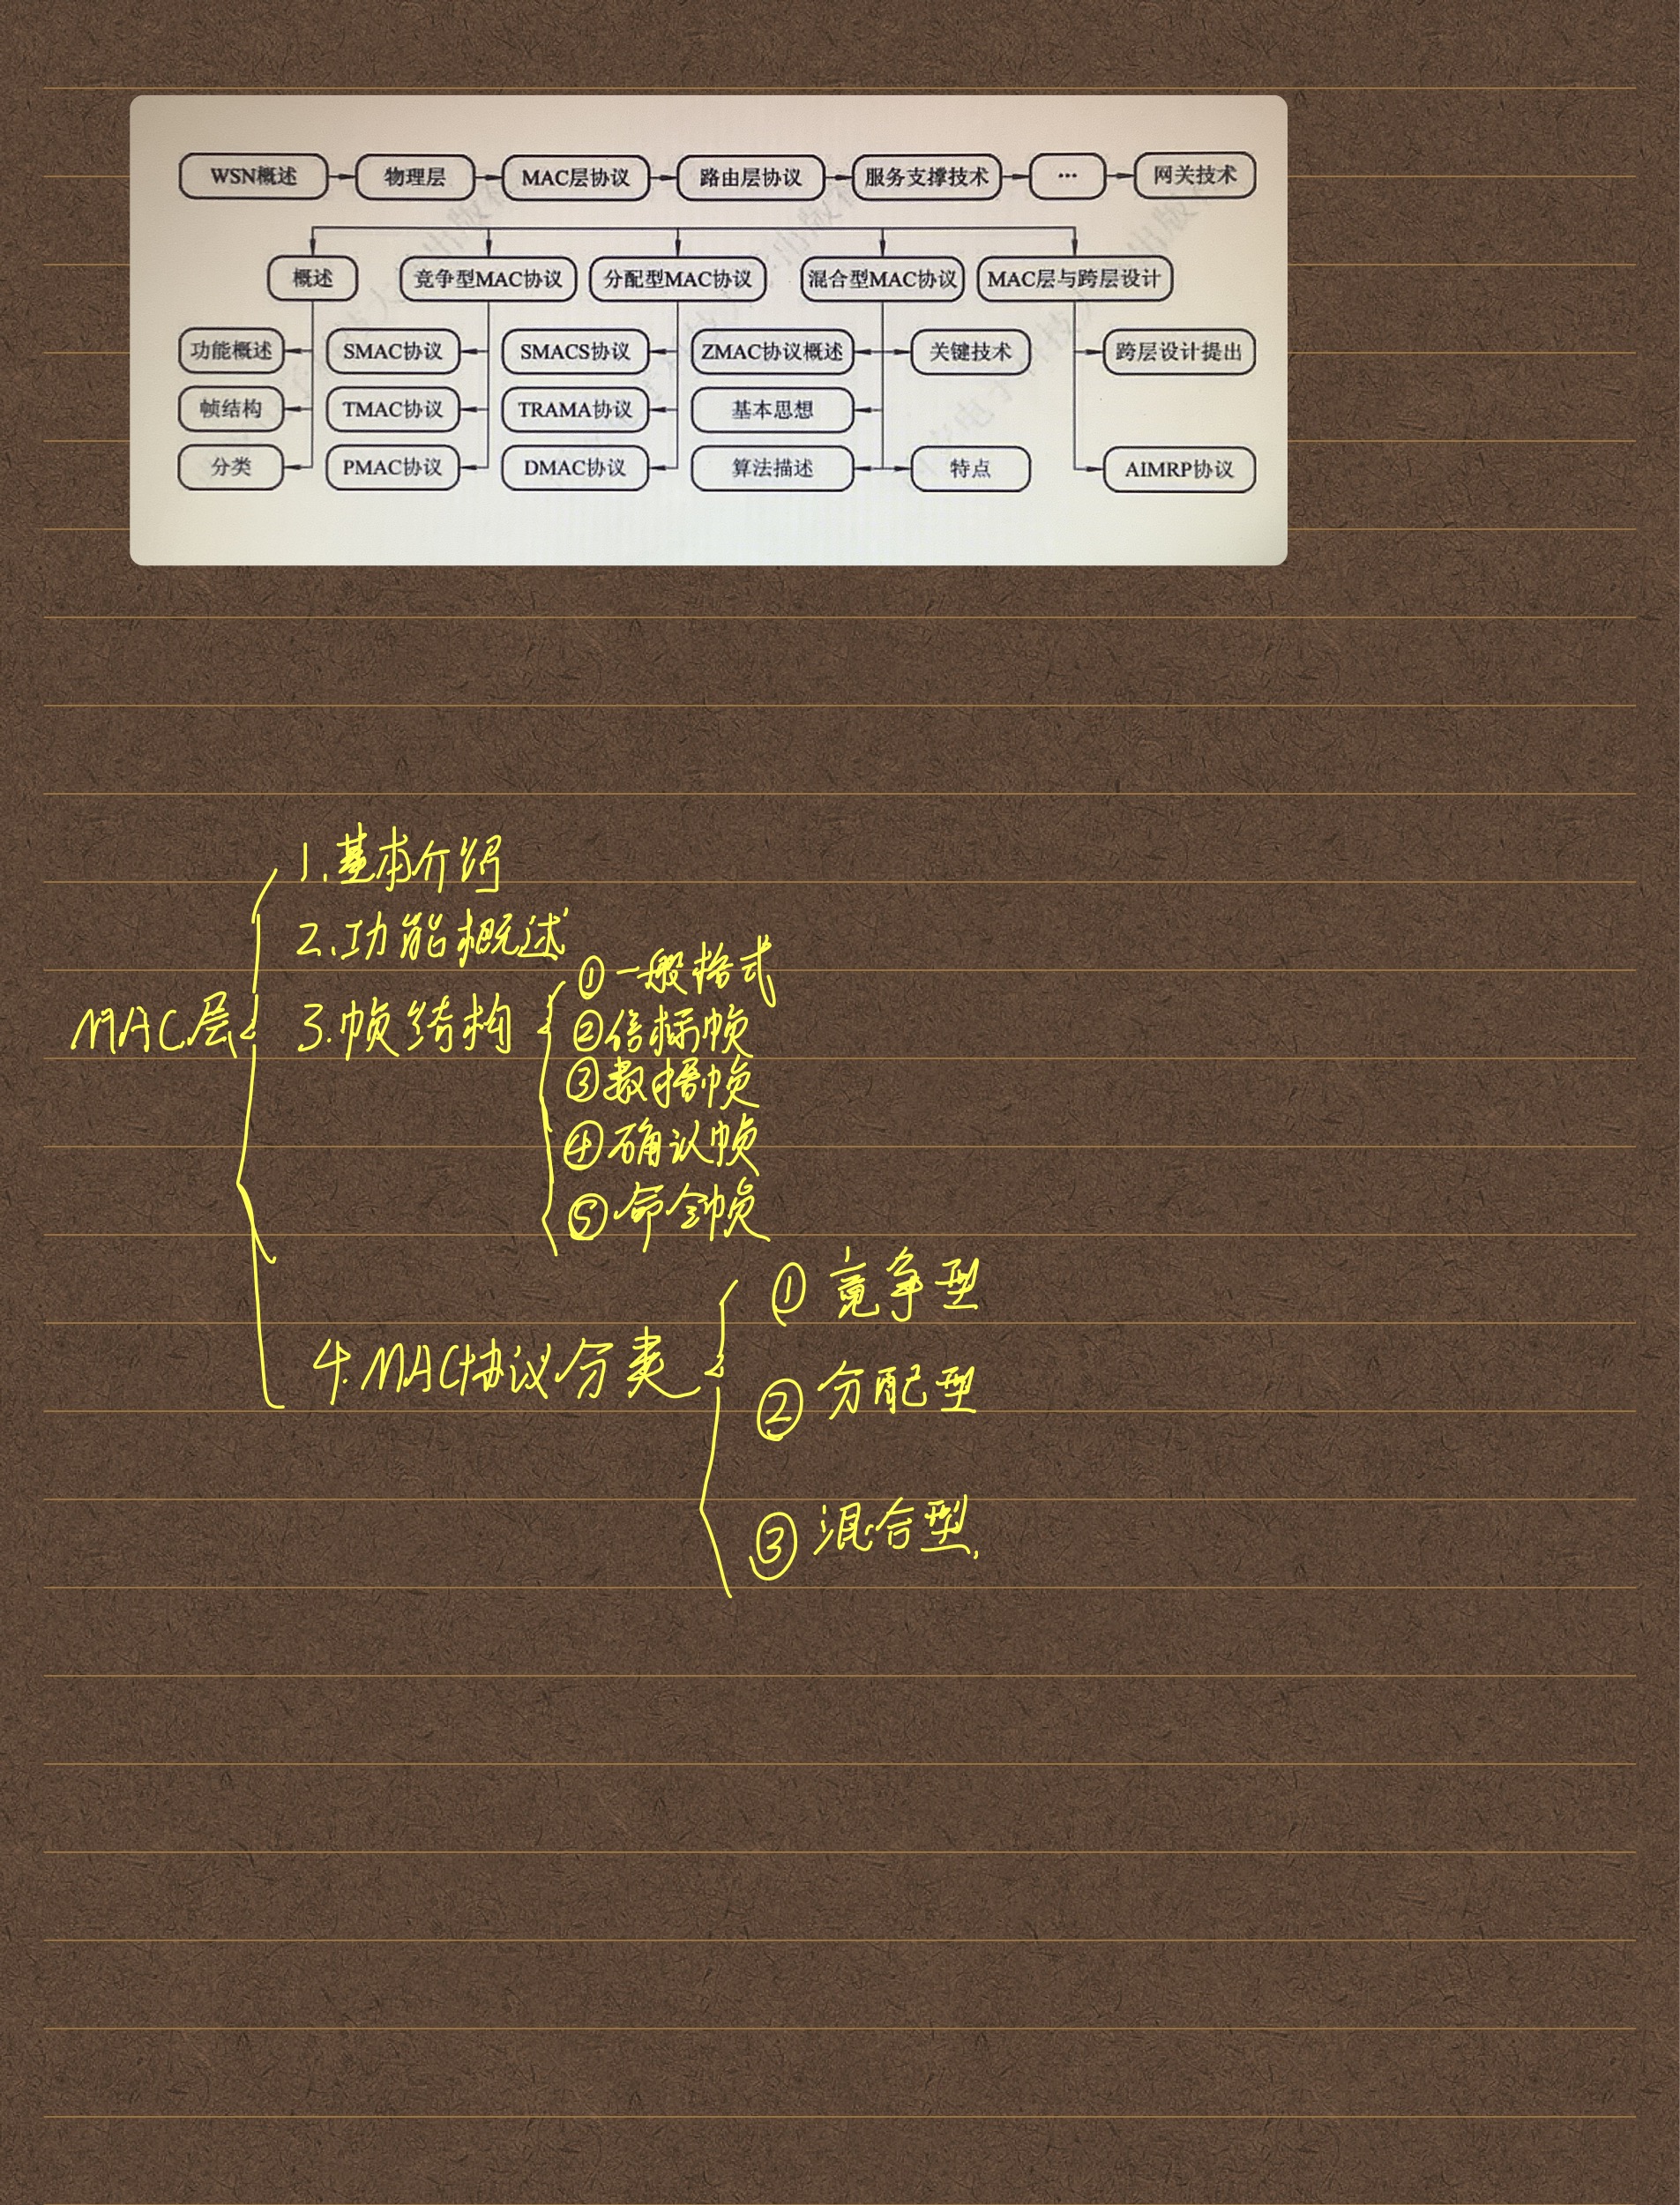 WSN概述 物理层 MAC层协议 路由层协议 服务支撑技术 … 网关技术
概述 竞争型MAC协议 分配型MAC协议 混合型MAC协议 MAC层与跨层设计
功能概述 SMAC协议 SMACS协议 ZMAC协议概述 关键技术 跨层设计提出
帧结构 TMAC协议 TRAMA协议 基本思想
分类 PMAC协议 DMAC协议 算法描述 特点 AIMRP协议
MAC层
1.基本介绍
2.功能概述
3.帧结构
①一般格式
②信标帧
③数据帧
④确认帧
⑤命令帧
4.MAC协议分类
①竞争型
②分配型
③混合型